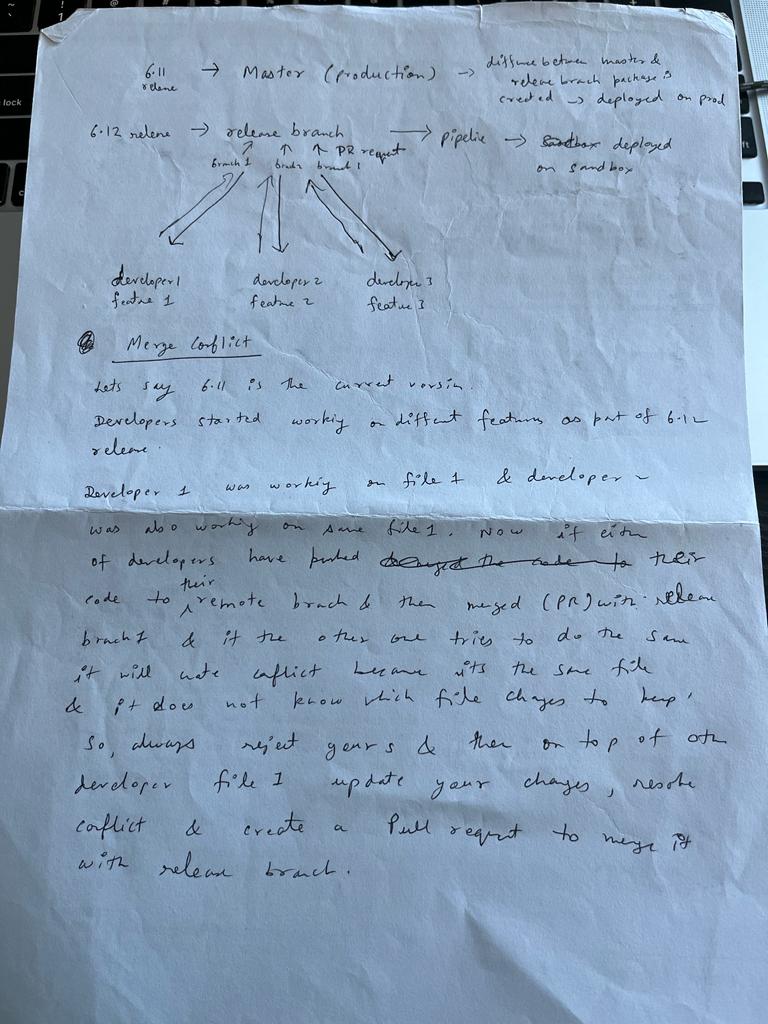 6.11 release → Master (production) → diffrence between master &
release brach package is
created → deployed on prod
6.12 release → release branch → pipeline → sandbox deployed
on sandbox
↑ PR request
branch 1 branch 2 branch 1
developer 1 developer 2 developer 3
feature 1 feature 2 feature 3
Merge Conflict
Lets say 6.11 is the current version.
Developers started working on different features as part of 6.12
release.
Developer 1 was working on file 1 & developer 2
was also working on same file 1. Now if either
of developers have pushed their
code to their remote brach & then merged (PR) with release
branch 1 & if the other one tries to do the same
it will create conflict because its the same file
& it does not know which file chages to keep.
So, always reject yours & then on top of other
developer file 1 update your changes, resolve
conflict & create a Pull request to merge it
with release branch.